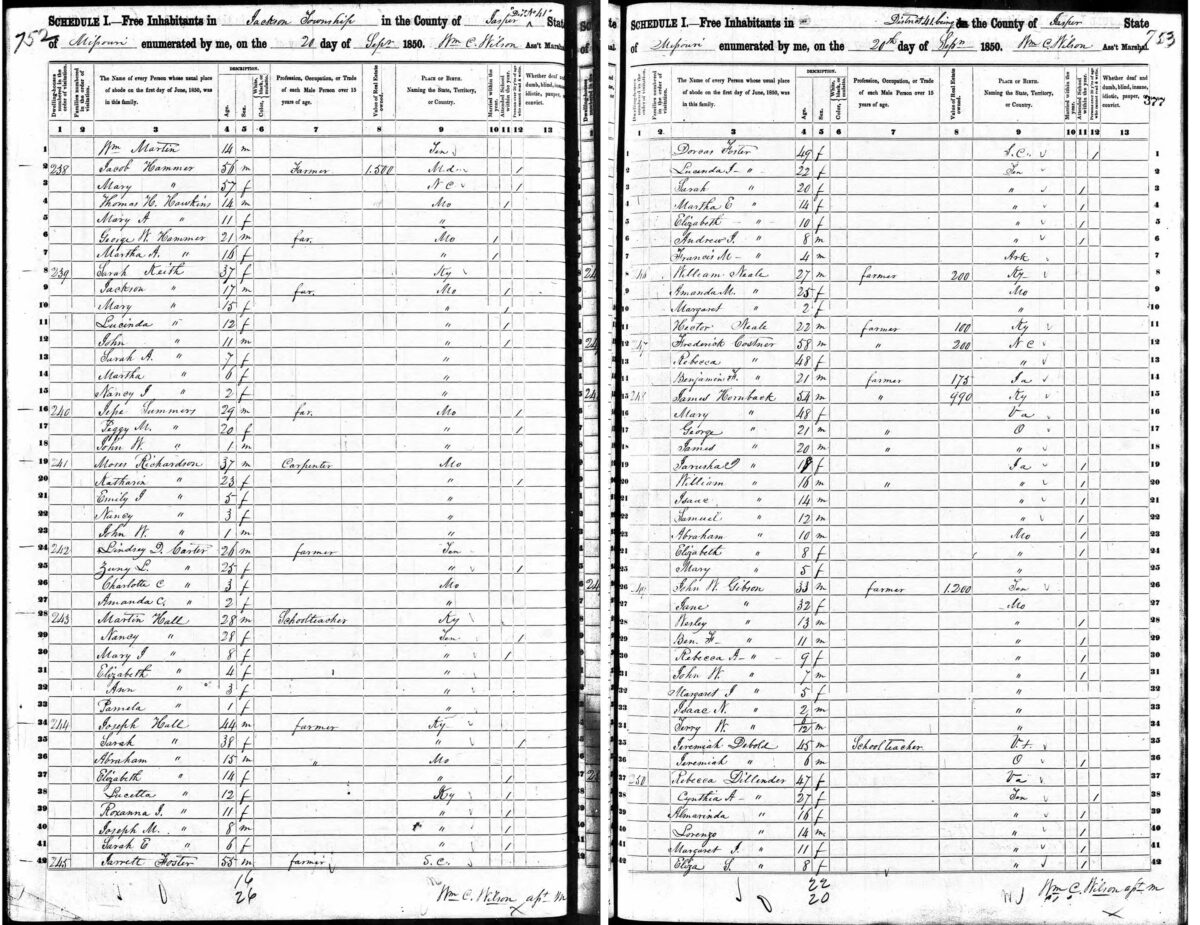 752
SCHEDULE I.—Free Inhabitants in Jackson Township in the County of Jasper "Dist No 41" State
of Missouri enumerated by me, on the 20 day of Sepr 1850. Wm C. Wilson Ass't Marshal
Dwelling-houses numbered in the order of visitation.
Families numbered in the order of visitation.
The Name of every Person whose usual place of abode on the first day of June, 1850, was in this family.
DESCRIPTION.
Age.
Sex.
Color, White, black, or mulatto.
Profession, Occupation, or Trade of each Male Person over 15 years of age.
Value of Real Estate owned.
PLACE OF BIRTH. Naming the State, Territory, or Country.
Married within the year.
Attended School within the year.
Whether deaf and dumb, blind, insane, idiotic, pauper, or convict.
1 2 3 4 5 6 7 8 9 10 11 12 13
1 Wm Martin 14 m Ten
2 238 Jacob Hammer 56 m Farmer 1.500 Md 1
3 Mary " 57 f N C 1
4 Thomas H. Hawkins 14 m Mo 1
5 Mary A " 11 f " 1
6 George W. Hammer 21 m far. Mo 1
7 Martha A. " 16 f " 1
8 239 Sarah Keith 37 f Ky 1
9 Jackson " 17 m far. Mo 1
10 Mary " 15 f " 1
11 Lucinda " 12 f " 1
12 John " 11 m " 1
13 Sarah A. " 7 f "
14 Martha " 6 f "
15 Nancy J " 2 f "
16 240 Jesse Summers 29 m far. Mo 1
17 Peggy M. " 20 f " 1
18 John W. " 1 m "
19 241 Moses Richardson 37 m Carpenter Mo
20 Katharin " 23 f " 1
21 Emily J " 5 f "
22 Nancy " 3 f "
23 John W. " 1 m "
24 242 Lindsey D. Carter 26 m farmer Ten
25 L. " 25 f " 1
26 Charlotte C " 3 f Mo
27 Amanda C. " 2 f "
28 243 Martin Hall 28 m Schoolteacher Ky
29 Nancy " 28 f Ten 1
30 Mary J " 8 f " 1
31 Elizabeth " 4 f "
32 Ann " 3 f "
33 Pamela " 1 f "
34 244 Joseph Hall 44 m farmer Ky
35 Sarah " 38 f " 1
36 Abraham " 15 m " Mo
37 Elizabeth " 14 f " 1
38 Lucetta " 12 f Ky 1
39 Roxanna J. " 11 f " 1
40 Joseph M. " 8 m " 1
41 Sarah E " 6 f " 1
42 245 Jarrett Foster 55 m farmer S. C.
16
26
Wm C. Wilson
753
SCHEDULE I.—Free Inhabitants in District 41 being in the County of Jasper State
of Missouri enumerated by me, on the 20th day of Sepr 1850. Wm C. Wilson Ass't Marshal.
377
The Name of every Person whose usual place of abode on the first day of June, 1850, was in this family.
DESCRIPTION.
Age.
Sex.
Profession, Occupation, or Trade of each Male Person over 15 years of age.
Value of Real Estate owned.
PLACE OF BIRTH. Naming the State, Territory, or Country.
Married within the year.
Attended School within the year.
Whether deaf and dumb, blind, insane, idiotic, pauper, or convict.
1 2 3 4 5 6 7 8 9 10 11 12 13
1 Dorcas Foster 49 f S. C. 1 1
2 Lucinda J " 22 f Ten 2
3 Sarah " 20 f " 1 3
4 Martha E " 14 f " 1 4
5 Elizabeth " 10 f " 1 5
6 Andrew J. " 8 m " 1 6
7 Francis M " 4 m Ark 7
8 William Neale 27 m farmer 200 Ky 8
9 Amanda M. " 25 f Mo 9
10 Margaret " 2 f " 10
11 Hector Neale 22 m farmer 100 Ky 11
12 Frederick Costner 58 m " 200 N C 12
13 Rebecca " 48 f " 13
Benjamin F. " 21 m farmer 175 Ia 14
15 248 James Hornback 54 m " 990 Ky 15
16 Mary " 48 f Va 16
17 George " 21 m " O 17
18 James " 20 m " " 18
19 Jarusha " 18 f Ia 1 19
20 William " 16 m " " 1 20
21 Isaac " 14 m " 1 21
22 Samuel " 12 m " 1 22
23 Abraham " 10 m Mo 1 23
Elizabeth " 8 f " 1 24
25 Mary " 5 f " 25
26 John W. Gibson 33 m farmer 1.200 Ten 26
27 Jane " 32 f Mo 27
28 Wesley " 13 m " 1 28
29 Ben. F " 11 m " 1 29
30 Rebecca A " 9 f " 1 30
31 John W. " 7 m " 1 31
32 Margaret J " 5 f " 32
33 Isaac N. " 2 m " 33
Terry W. " /12 m " 34
Jeremiah Debold 45 m Schoolteacher 35
36 Jeremiah " 6 m O 36
37 250 Rebecca Dillender 47 f Va 37
38 Cynthia A " 27 f Ten 1 38
39 Almarinda " 16 f " 1 39
40 Lorenzo " 14 m " 1 40
41 Margaret J. " 11 f " 1 41
42 Eliza S. " 8 f " 1 42
22
20
Wm C. Wilson